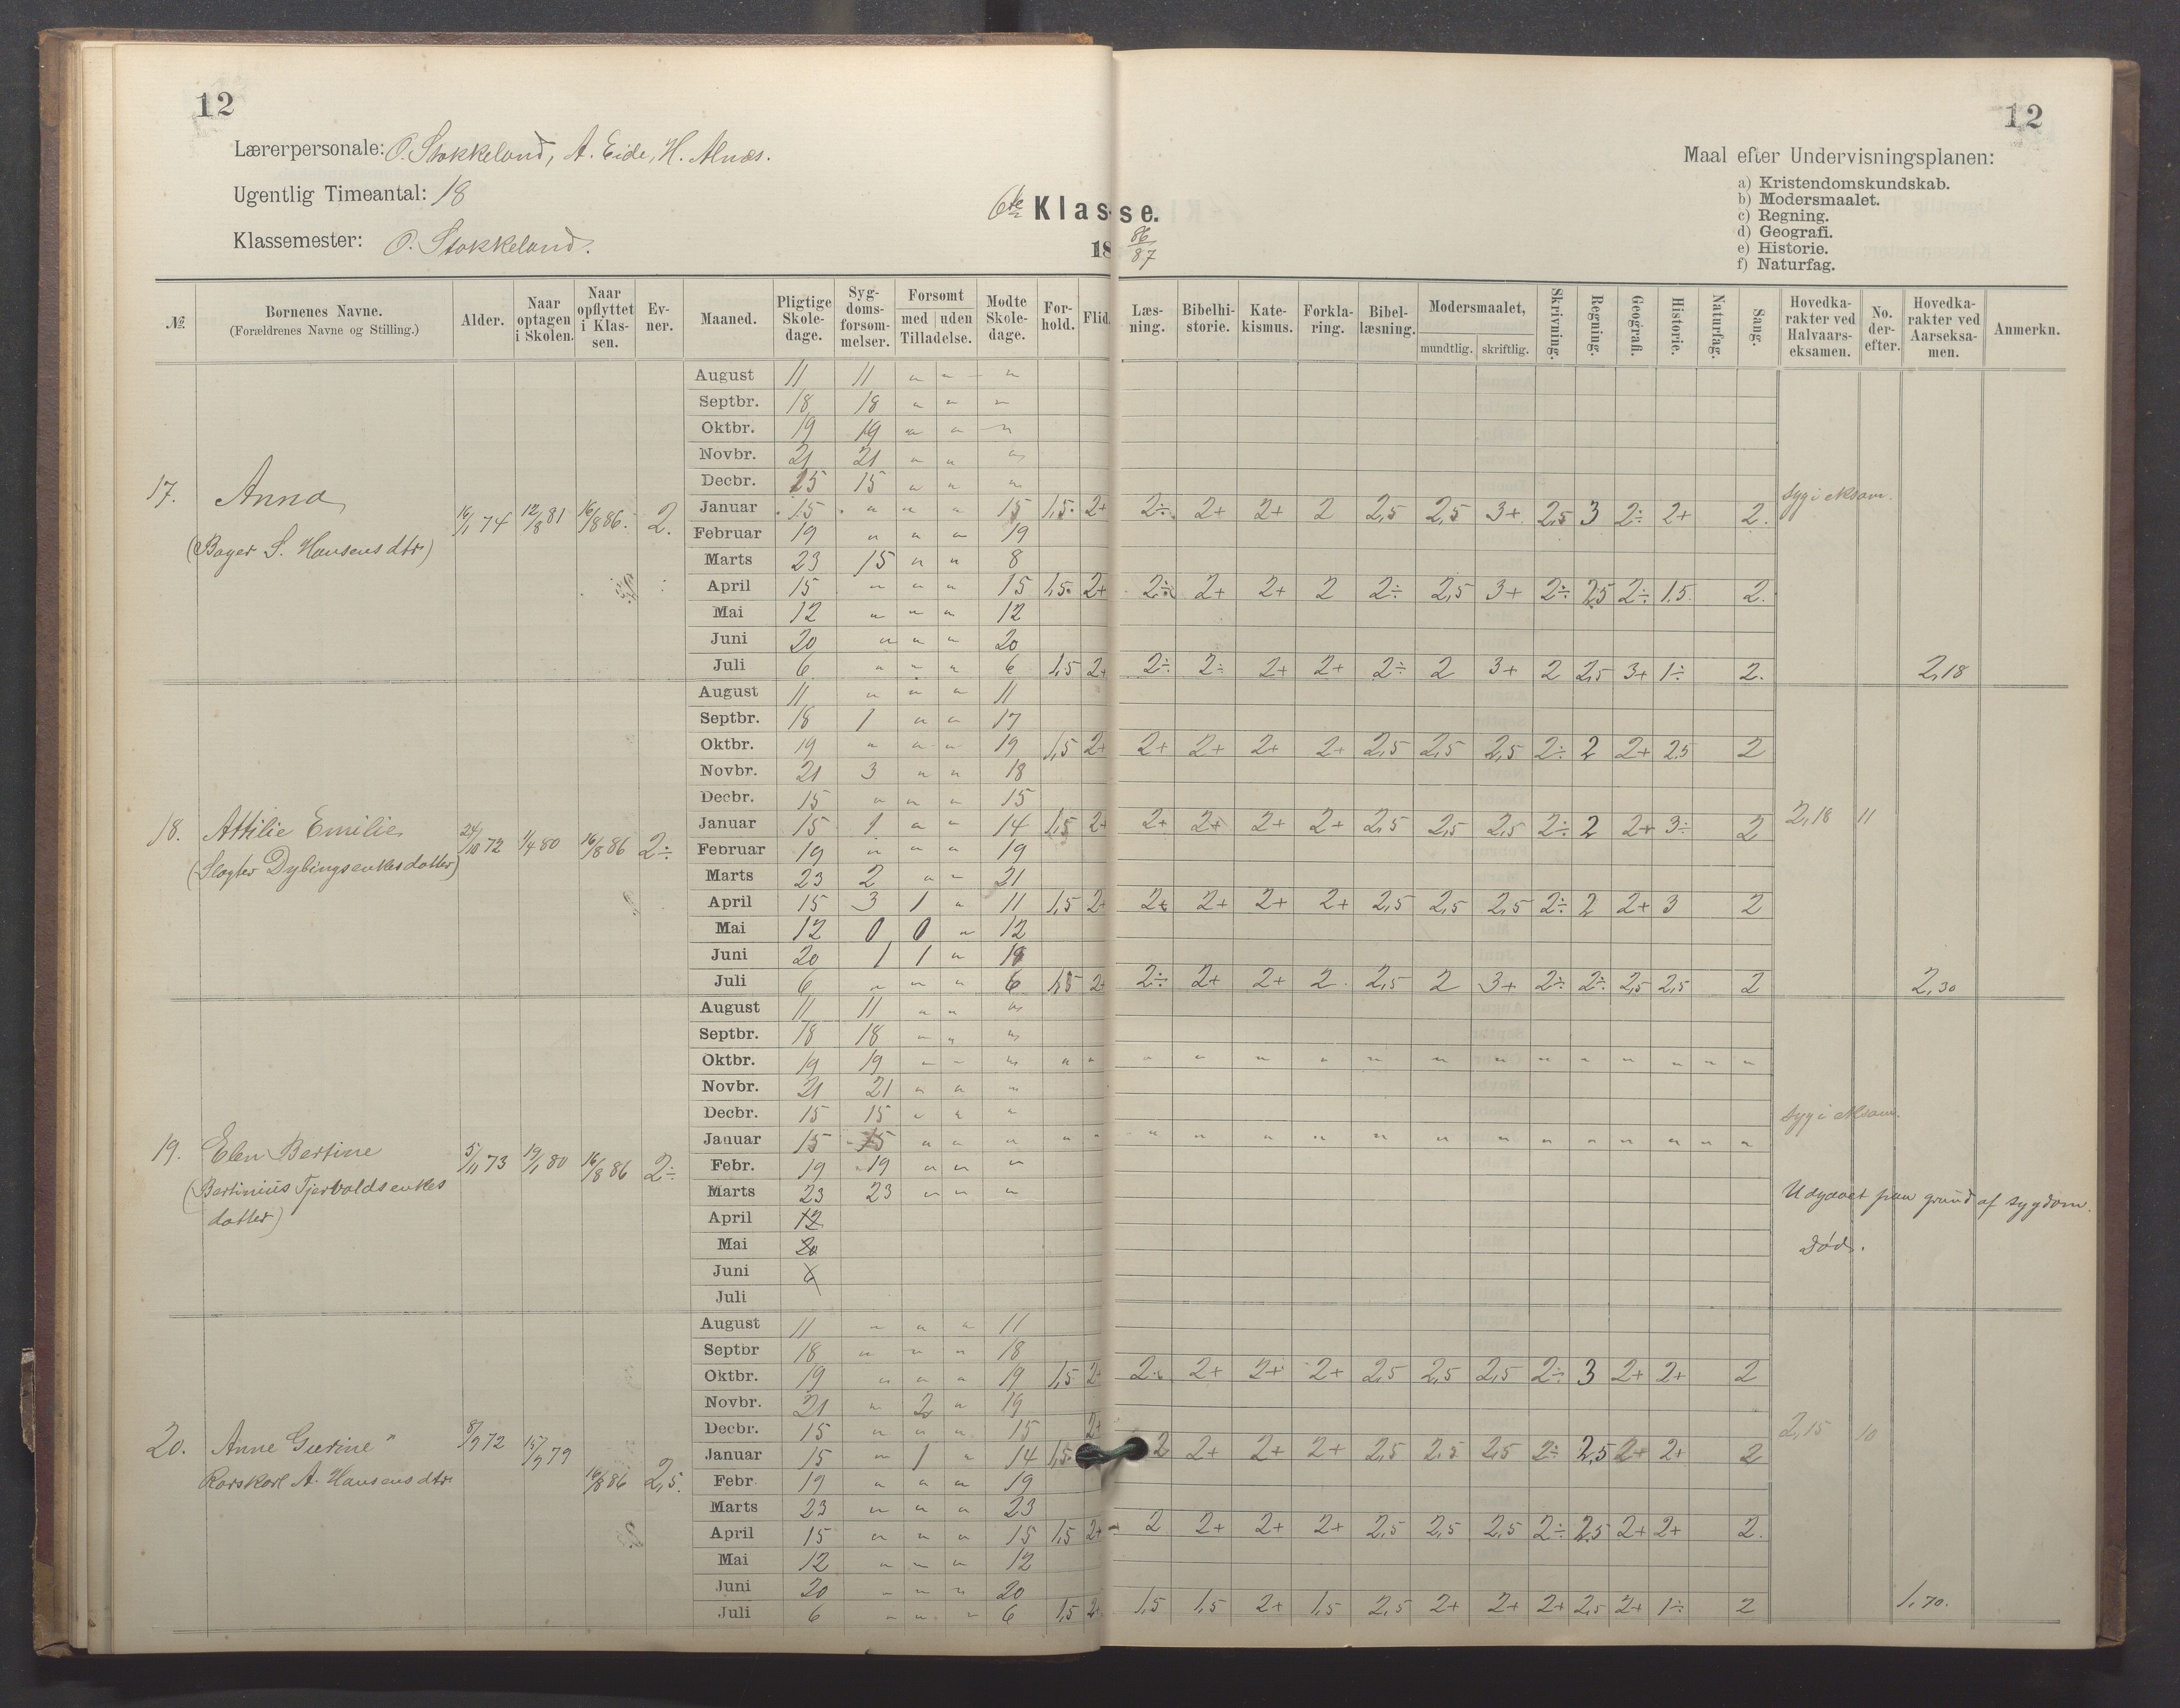 12
12
Lærerpersonale: O. Stokkeland, A. Eide, H. Alnæs.
Ugentlig Timeantal: 18
Klassemester: O. Stokkeland.
6te Klasse.
18 86/87
Maal efter Undervisningsplanen:
a) Kristendomskundskab.
b) Modersmaalet.
c) Regning.
d) Geografi.
e) Historie.
f) Naturfag.
№ Børnenes Navne. (Forældrenes Navne og Stilling.) Alder. Naar optagen i Skolen. Naar opflyttet i Klassen. Evner. Maaned. Pligtige Skoledage. Sygdomsforsømmelser. Forsømt med uden Tilladelse. Mødte Skoledage. Forhold. Flid. Læsning. Bibelhistorie. Katekismus. Forklaring. Bibellæsning. Modersmaalet, mundtlig. skriftlig. Skrivning. Regning. Geografi. Historie. Naturfag. Sang. Hovedkarakter ved Halvaarseksamen. No. derefter. Hovedkarakter ved Aarseksamen. Anmerkn.
17. Anna
(Bayer S. Hansens dtr)
16/1 74 12/8 81 16/8 86. 2.
August 11 11 " " "
Septbr. 18 18 " " "
Oktbr. 19 19 " " "
Novbr. 21 21 " " "
Decbr. 15 15 " " "
Januar 15 " " " 15 1,5 2+ 2÷ 2+ 2+ 2 2,5 2,5 3+ 2,5 3 2÷ 2+ 2. syg i eksam.
Februar 19 " " " 19
Marts 23 15 " " 8
April 15 " " " 15 1,5 2+ 2÷ 2+ 2+ 2 2÷ 2,5 3+ 2÷ 2,5 2÷ 1,5. 2.
Mai 12 " " " 12
Juni 20 " " " 20
Juli 6 " " " 6 1,5 2+ 2÷ 2÷ 2+ 2+ 2÷ 2 3+ 2 2,5 3+ 1÷ 2. 2,18
18. Attilie Emilie
(Slagter Dybingsenkes datter)
24/10 72 1/4 80 16/8 86 2÷
August 11 " " " 11
Septbr. 18 1 " " 17
Oktbr. 19 " " " 19 1,5 2+ 2+ 2+ 2+ 2+ 2,5 2,5 2,5 2÷ 2 2+ 2,5 2
Novbr. 21 3 " " 18
Decbr. 15 " " " 15
Januar 15 1 " " 14 1,5 2+ 2+ 2+ 2+ 2+ 2,5 2,5 2,5 2÷ 2 2+ 3÷ 2 2,18 11
Februar 19 " " " 19
Marts 23 2 " " 21
April 15 3 1 " 11 1,5 2+ 2+ 2+ 2+ 2+ 2,5 2,5 2,5 2÷ 2 2+ 3 2
Mai 12 0 0 " 12
Juni 20 1 1 " 18
Juli 6 " " " 6 1,5 2+ 2÷ 2+ 2+ 2. 2,5 2 3+ 2÷ 2÷ 2,5 2,5 2 2,30
19. Elen Bertine
(Bertinius Tjervoldsenkes
datter)
5/11 73 19/1 80 16/8 86 2÷
August 11 11 " " "
Septbr. 18 18 " " "
Oktbr. 19 19 " " " " " " " " " " " " " " " " " "
Novbr. 21 21 " " "
Decbr. 15 15 " " " syg i eksam.
Januar 15 15 " " " " " " " " " " " " " " " " " "
Febr. 19 19 " " "
Marts 23 23 " " " Udgaaet paa grund af sygdom.
April 12
Mai 20 Død.
Juni 6
Juli
20. Anne Gurine
Korskarl A. Hansens dtr.
8/9 72 15/9 79 16/8 86 2,5.
August 11 " " " 11
Septbr 18 " " " 18
Oktbr. 19 " " " 19 1,5 2+ 2÷ 2+ 2+ 2+ 2,5 2,5 2,5 2÷ 3 2+ 2+ 2
Novbr. 21 " 2 " 19
Decbr. 15 " " " 15 2+
Januar 15 " 1 " 14 1,5 2 2+ 2+ 2+ 2,5 2,5 2,5 2÷ 2,5 2+ 2+ 2 2,15 10
Febr 19 " " " 19
Marts 23 " " " 23
April 15 " " " 15 1,5 2+ 2 2+ 2+ 2+ 2,5 2,5 2,5 2÷ 2,5 2+ 2+ 2.
Mai 12 " " " 12
Juni 20 " " " 20
Juli 6 " " " 6 1,5 2+ 1,5 1,5 2+ 1,5 2,5 2+ 2+ 2+ 2,5 2+ 1÷ 2 1,70.